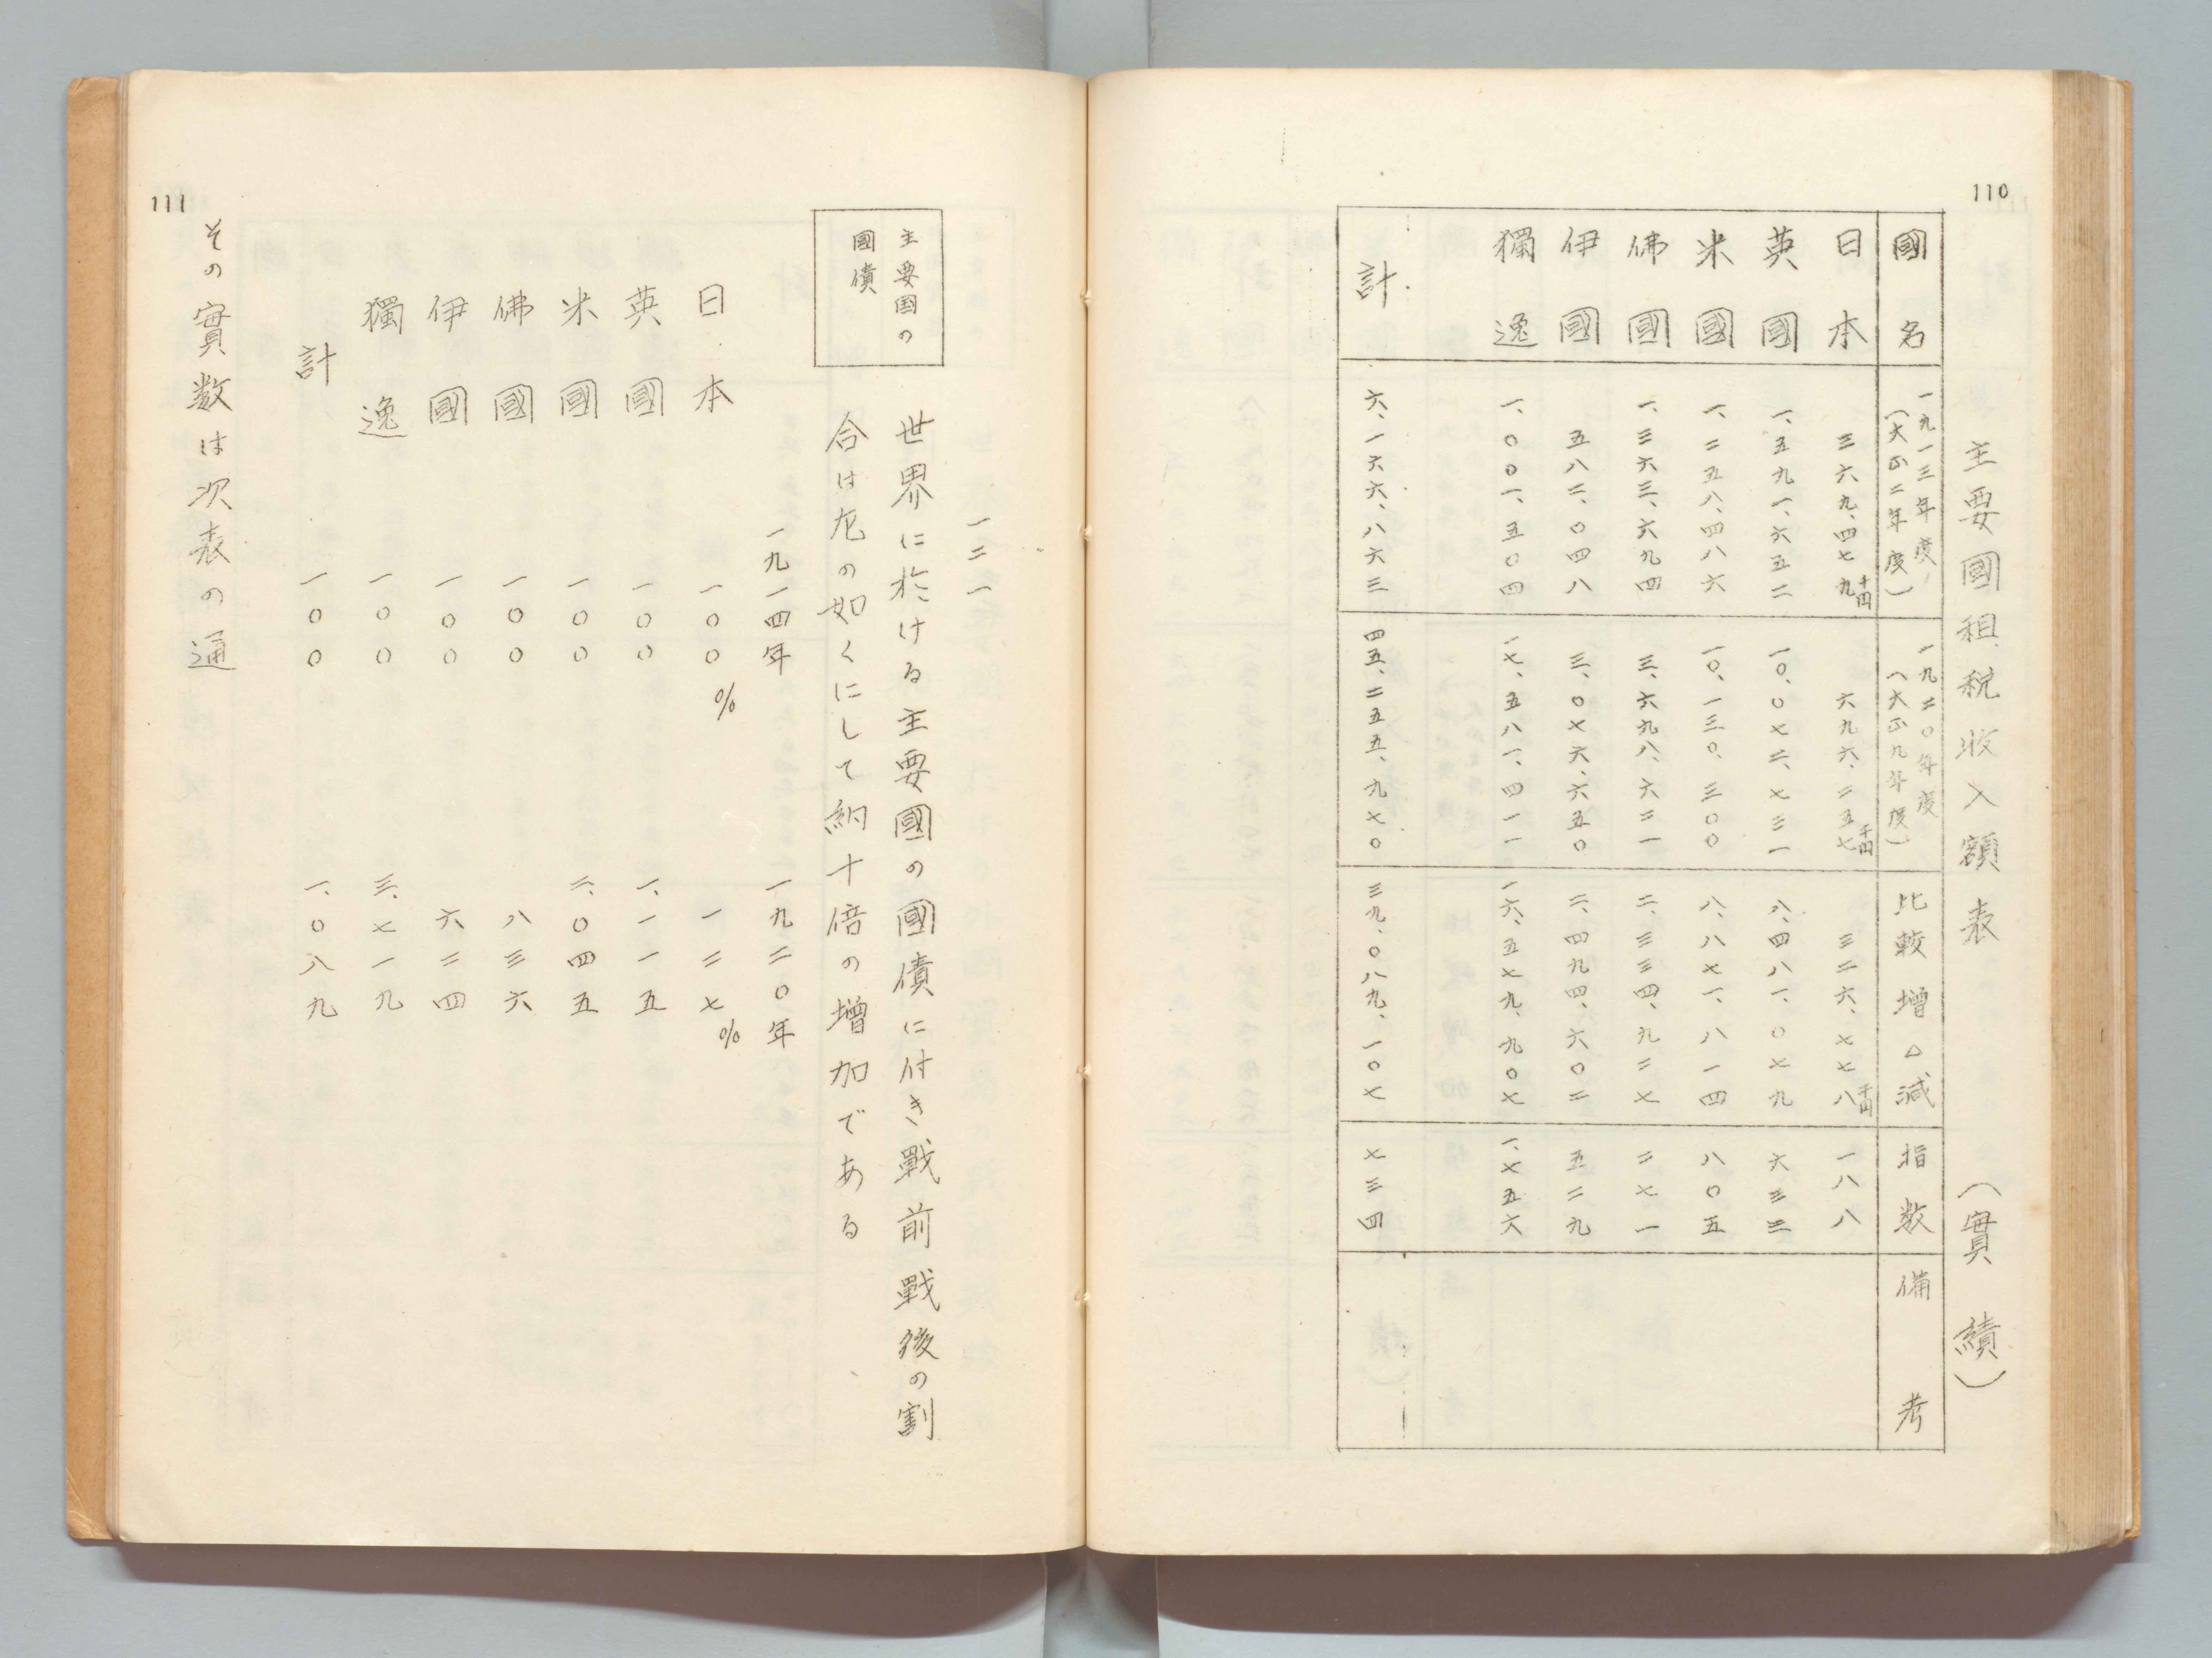 110
主要國租税收入額表　（實績）
國名　一九一三年度（大正二年度）　一九二〇年度（大正九年度）　比較増△減　指数　備考
日本　三六九、四七九千円　六九六、二五七千円　三二六、七七八千円　一八八
英國　一、五九一、六五二　一〇、〇七二、七三一　八、四八一、〇七九　六三三
米國　一、二五八、四八六　一〇、一三〇、三〇〇　八、八七一、八一四　八〇五
佛國　一、三六三、六九四　三、六九八、六二一　二、三三四、九二七　二七一
伊國　五八二、〇四八　三、〇七六、六五〇　二、四九四、六〇二　五二九
獨逸　一、〇〇一、五〇四　一七、五八一、四一一　一六、五七九、九〇七　一、七五六
計　六、一六六、八六三　四五、二五五、九七〇　三九、〇八九、一〇七　七三四
一二一
主要国の
國債
世界に於ける主要國の國債に付き戰前戰後の割
合は左の如くにして約十倍の増加である
一九一四年　一九二〇年
日本　一〇〇%　一二七%
英國　一〇〇　一、一一五
米國　一〇〇　二、〇四五
佛國　一〇〇　八三六
伊國　一〇〇　六二四
獨逸　一〇〇　三、七一九
計　一〇〇　一、〇八九
その實数は次表の通
111